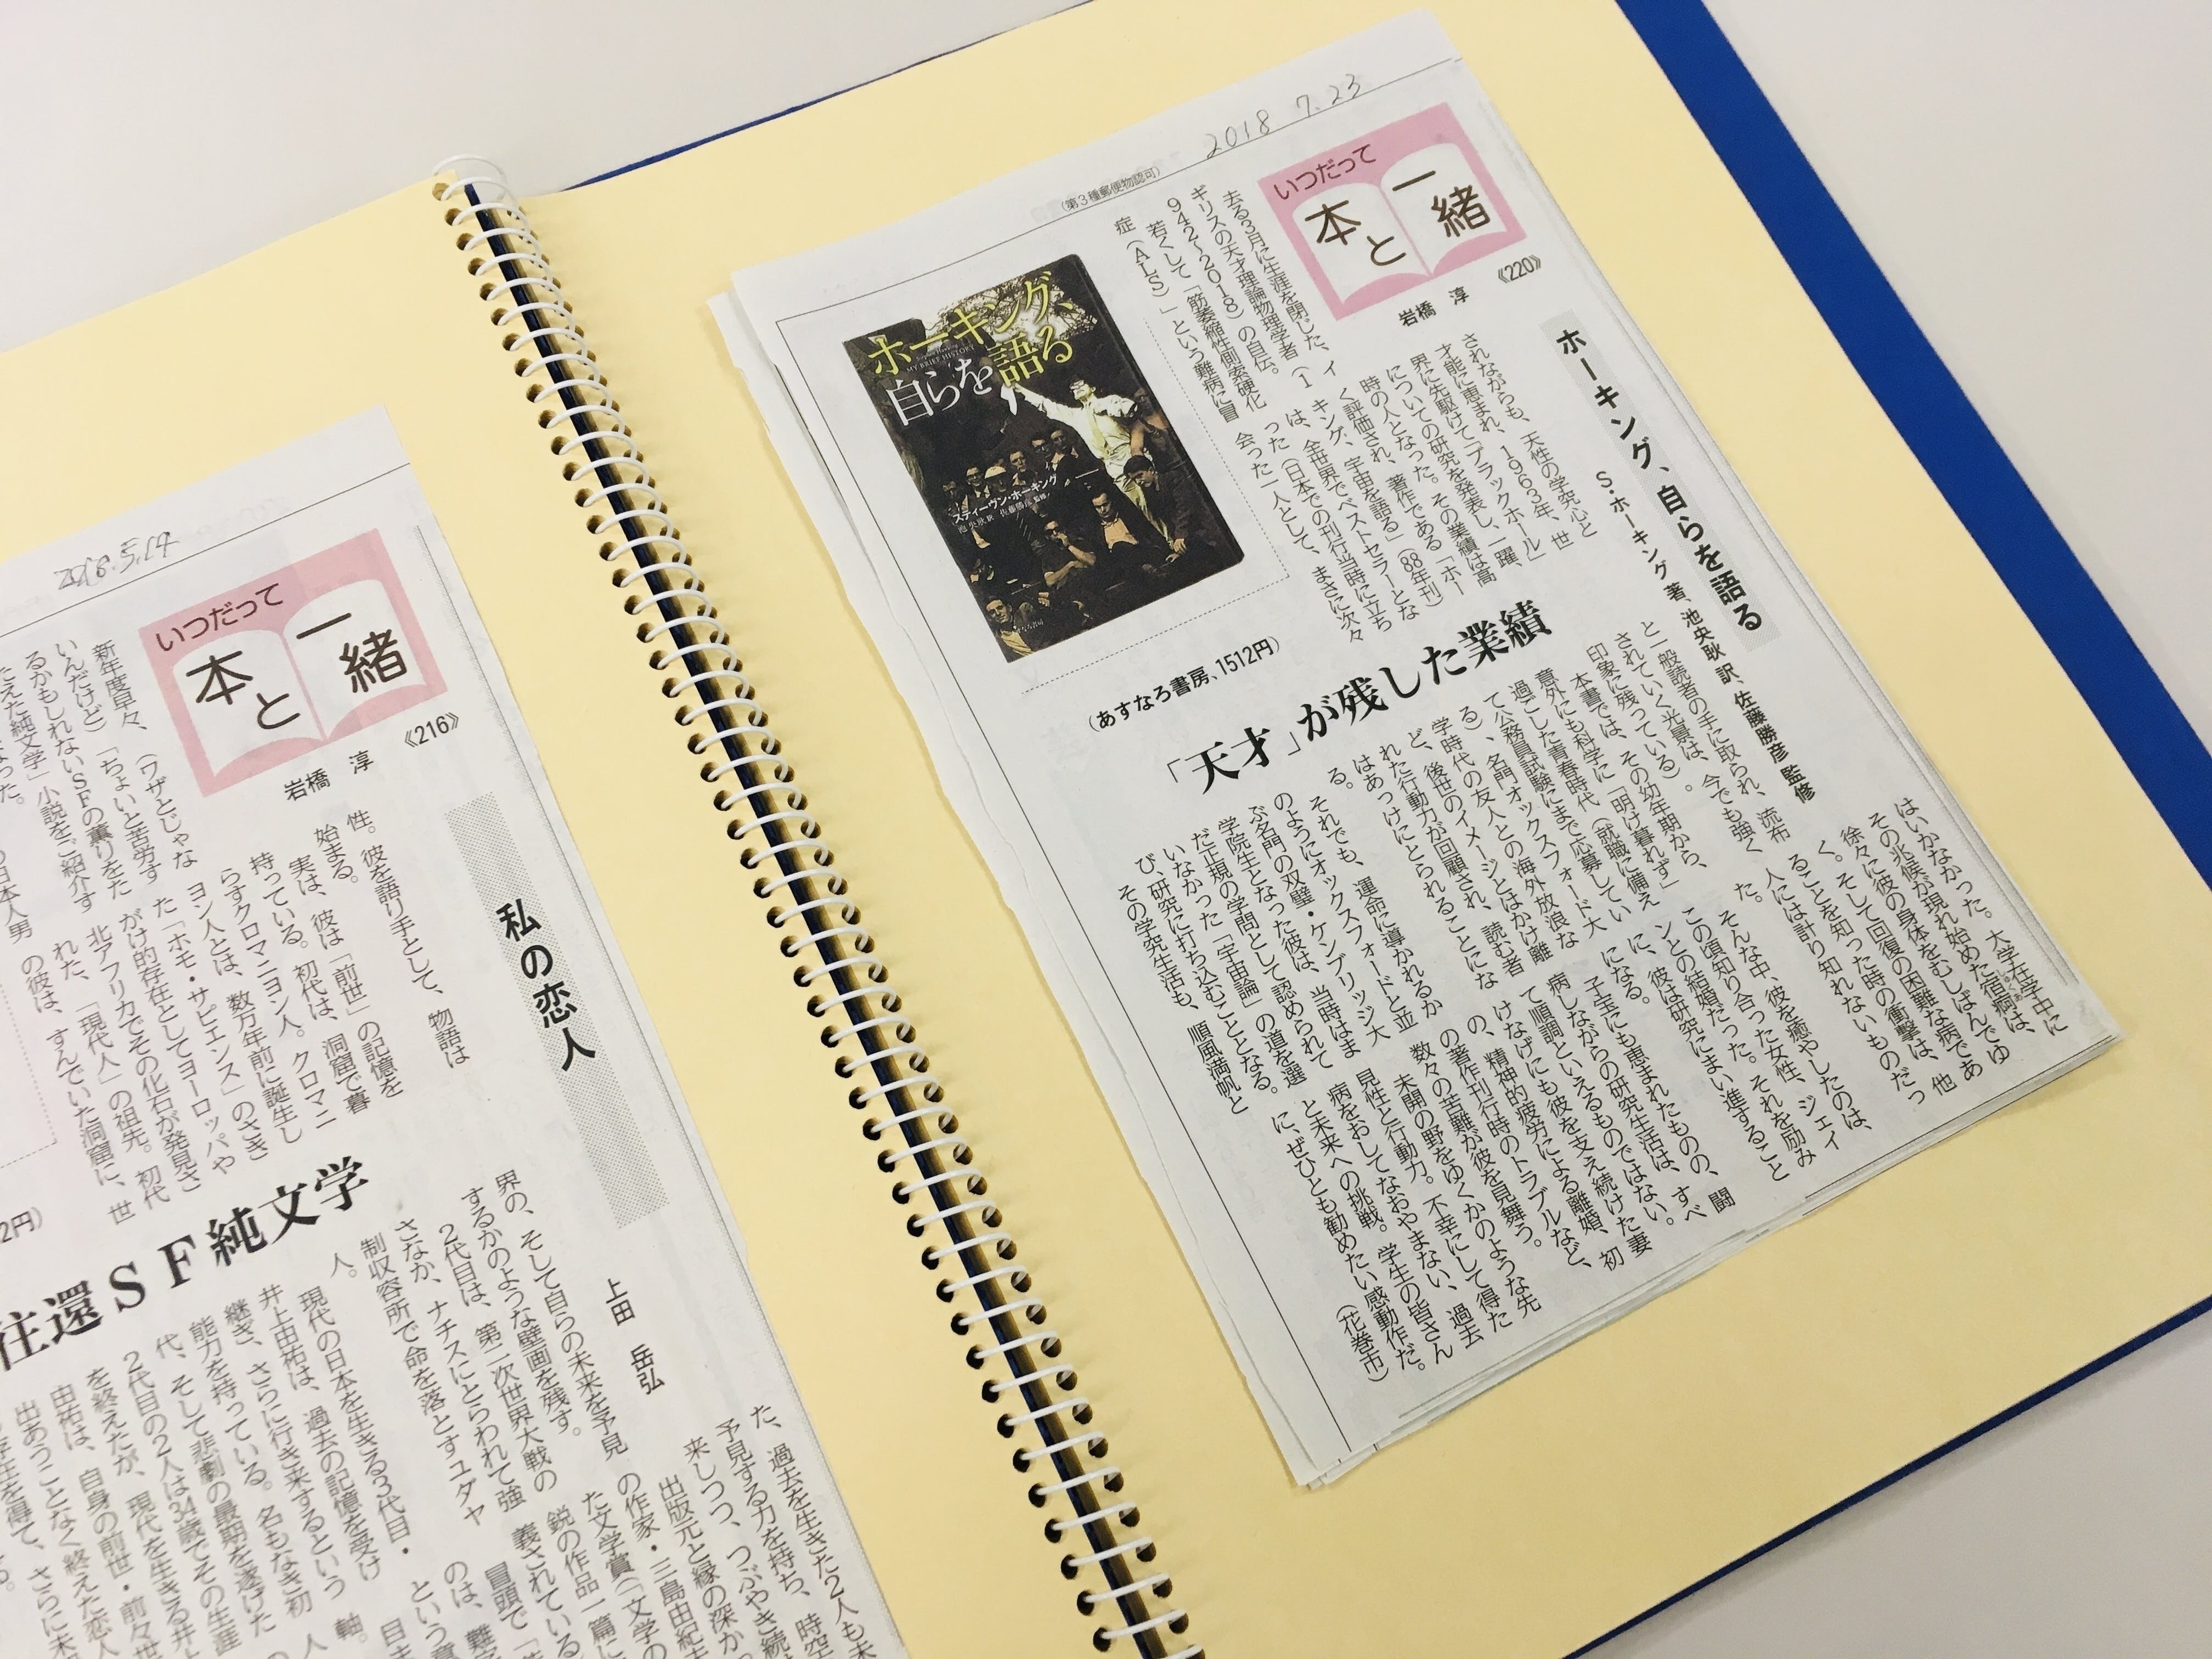 2018 7.23
(第3種郵便物認可)
いつだって
本と一緒
《220》
岩橋 淳
ホーキング、自らを語る
S・ホーキング 著、池央耿 訳、佐藤勝彦 監修
去る3月に生涯を閉じた、イ
ギリスの天才理論物理学者(1
942〜2018)の自伝。
若くして「筋萎縮性側索硬化
症(ALS)」という難病に冒
されながらも、天性の学究心と
才能に恵まれ、1963年、世
界に先駆けて「ブラックホール」
についての研究を発表し、一躍、
時の人となった。その業績は高
く評価され、著作である「ホー
キング、宇宙を語る」(88年刊)
は、全世界でベストセラーとな
った(日本での刊行当時に立ち
会った一人として、まさに次々
と一般読者の手に取られ、流布
されていく光景は、今でも強く
印象に残っている)。
本書では、その幼年期から、
意外にも科学に「明け暮れず」
過ごした青春時代(就職に備え
て公務員試験にまで応募してい
る)、名門オックスフォード大
学時代の友人との海外放浪な
ど、後世のイメージとはかけ離
れた行動力が回顧され、読む者
はあっけにとられることにな
る。
それでも、運命に導かれるか
のようにオックスフォードと並
ぶ名門の双璧・ケンブリッジ大
学院生となった彼は、当時はま
だ正規の学問として認められて
いなかった「宇宙論」の道を選
び、研究に打ち込むこととなる。
その学究生活も、順風満帆と
はいかなかった。大学在学中に
その兆候が現れ始めた宿痾は、
徐々に彼の身体をむしばんでゆ
く。そして回復の困難な病であ
ることを知った時の衝撃は、他
人には計り知れないものだっ
た。
そんな中、彼を癒やしたのは、
この頃知り合った女性、ジェイ
ンとの結婚だった。それを励み
に、彼は研究にまい進すること
になる。
子宝にも恵まれたものの、闘
病しながらの研究生活は、すべ
て順調といえるものではない。
けなげにも彼を支え続けた妻
の、精神的疲労による離婚、初
の著作刊行時のトラブルなど、
数々の苦難が彼を見舞う。
未開の野をゆくかのような先
見性と行動力。不幸にして得た
病をおしてなおやまない、過去
と未来への挑戦。学生の皆さん
に、ぜひとも勧めたい感動作だ。
(花巻市)
「天才」が残した業績
ホーキング、
MY BRIEF HISTORY
自らを語る
スティーヴン・ホーキング
池央耿 訳 佐藤勝彦 監修
(あすなろ書房、1512円)
2018.5.14
いつだって
本と一緒
《216》
岩橋 淳
私の恋人
上田 岳弘
新年度早々、(ワザとじゃな
いんだけど)「ちょいと苦労す
るかもしれないSFの薫りをた
たえた純文学」小説をご紹介す
性。彼を語り手として、物語は
始まる。
実は、彼は「前世」の記憶を
持っている。初代は、洞窟で暮
らすクロマニヨン人。クロマニ
ヨン人とは、数万年前に誕生し
た「ホモ・サピエンス」のさき
がけ的存在としてヨーロッパや
北アフリカでその化石が発見さ
れた、「現代人」の祖先。初代
の彼は、すんでいた洞窟に、世
界の、そして自らの未来を予見
するかのような壁画を残す。
2代目は、第二次世界大戦の
さなか、ナチスにとらわれて強
制収容所で命を落とすユダヤ
人。
現代の日本を生きる3代目・
井上由祐は、過去の記憶を受け
継ぎ、さらに行き来するという
能力を持っている。名もなき初
代、そして悲劇の最期を遂げた
2代目の2人は34歳でその生涯
を終えたが、現代を生きる井上
由祐は、自身の前世・前々世
出あうことなく終えた恋人
た、過去を生きた2人も未
予見する力を持ち、時空
来しつつ、つぶやき続
出版元と縁の深か
の作家・三島由紀夫
た文学賞(「文学の
鋭の作品一篇に
義されている
冒頭で
往還SF純文学
2円)